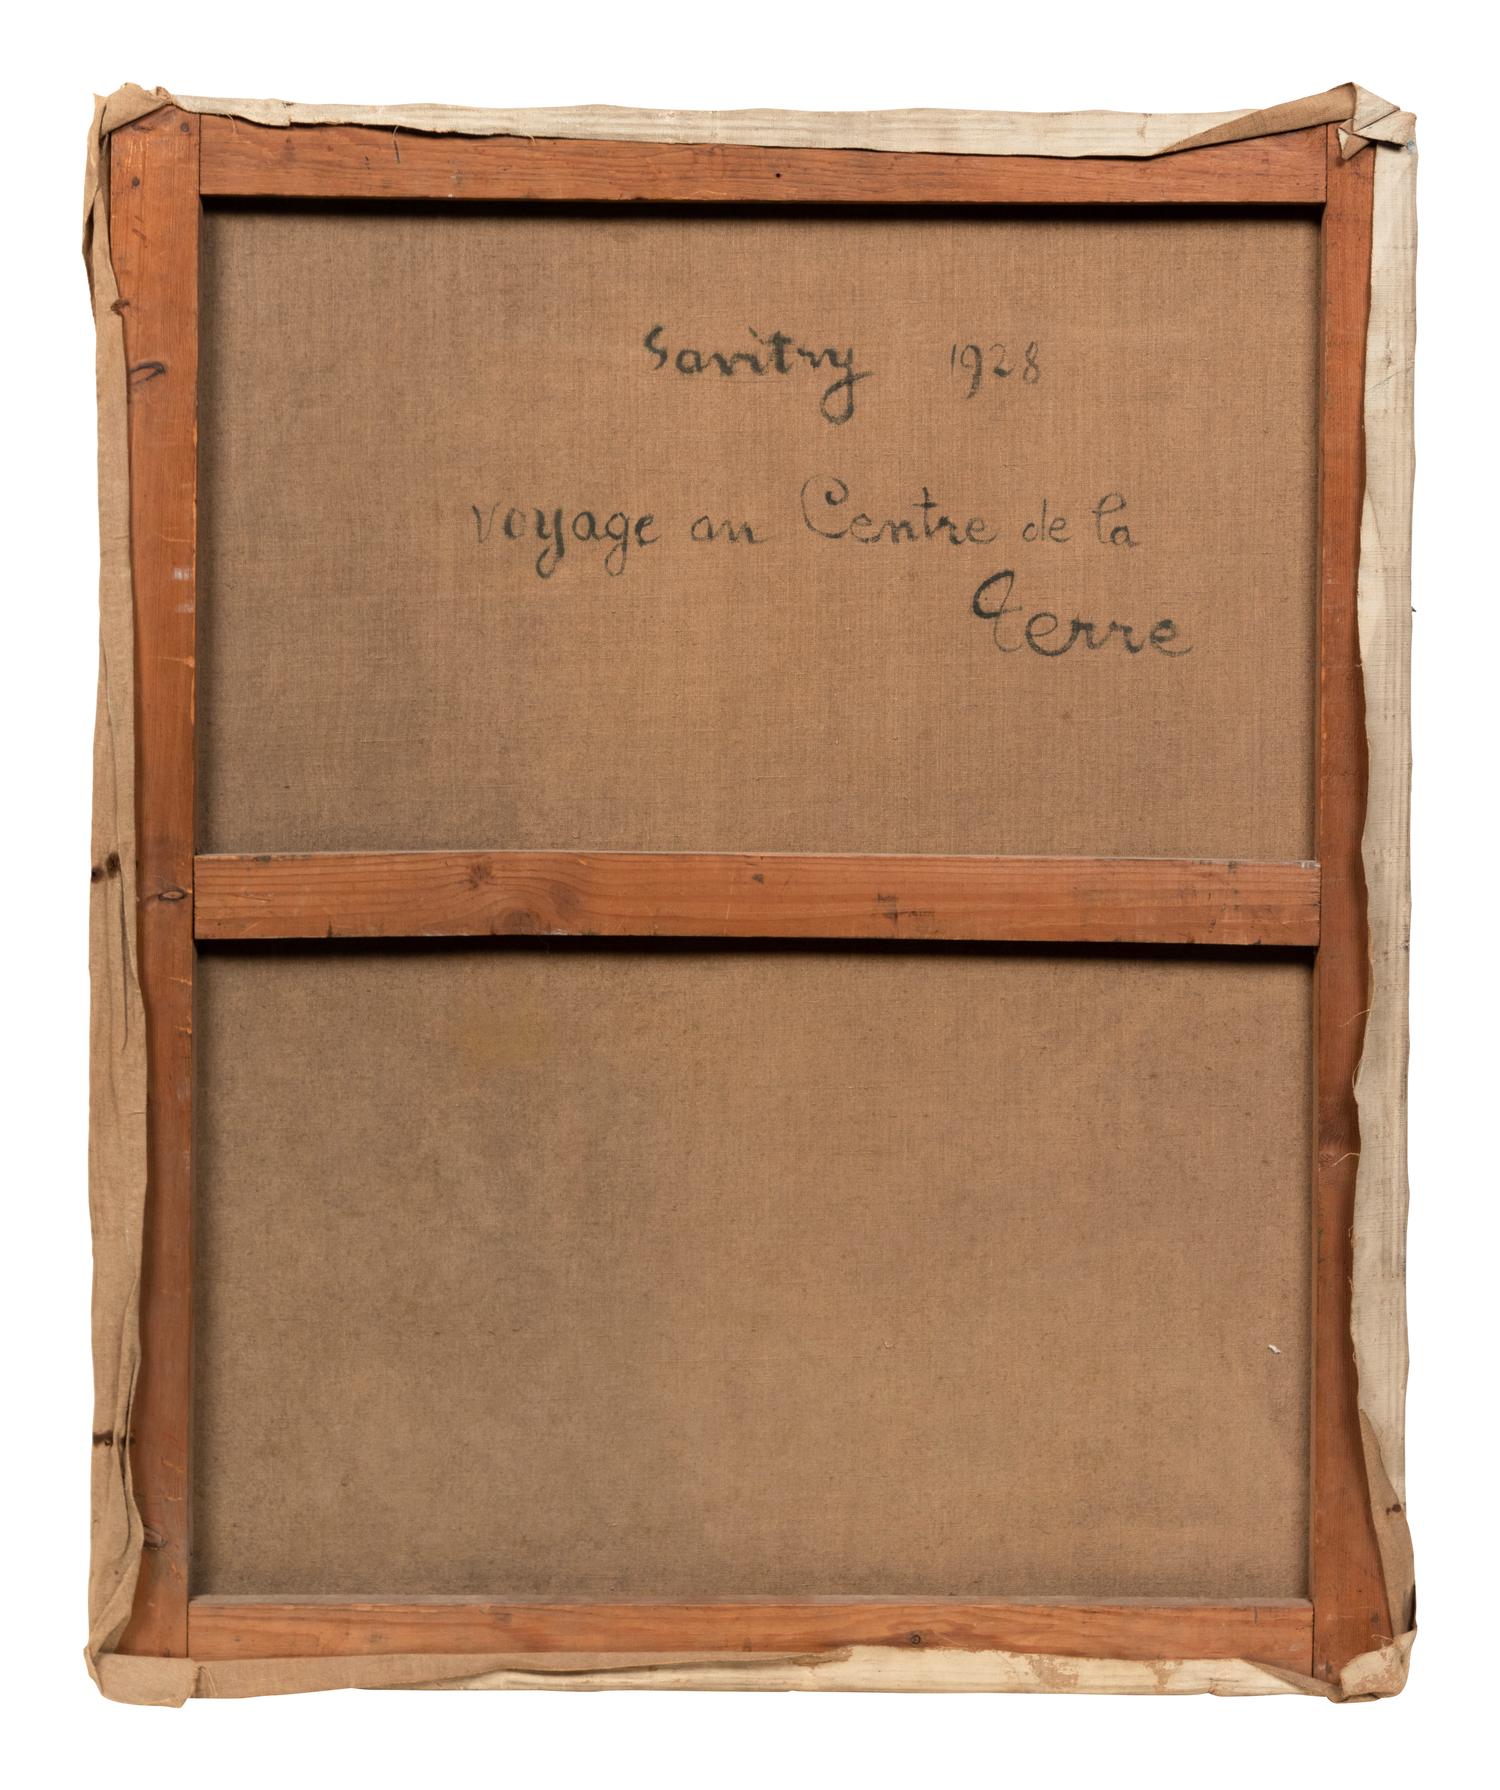 Savitry 1928
Voyage au Centre de la
Terre